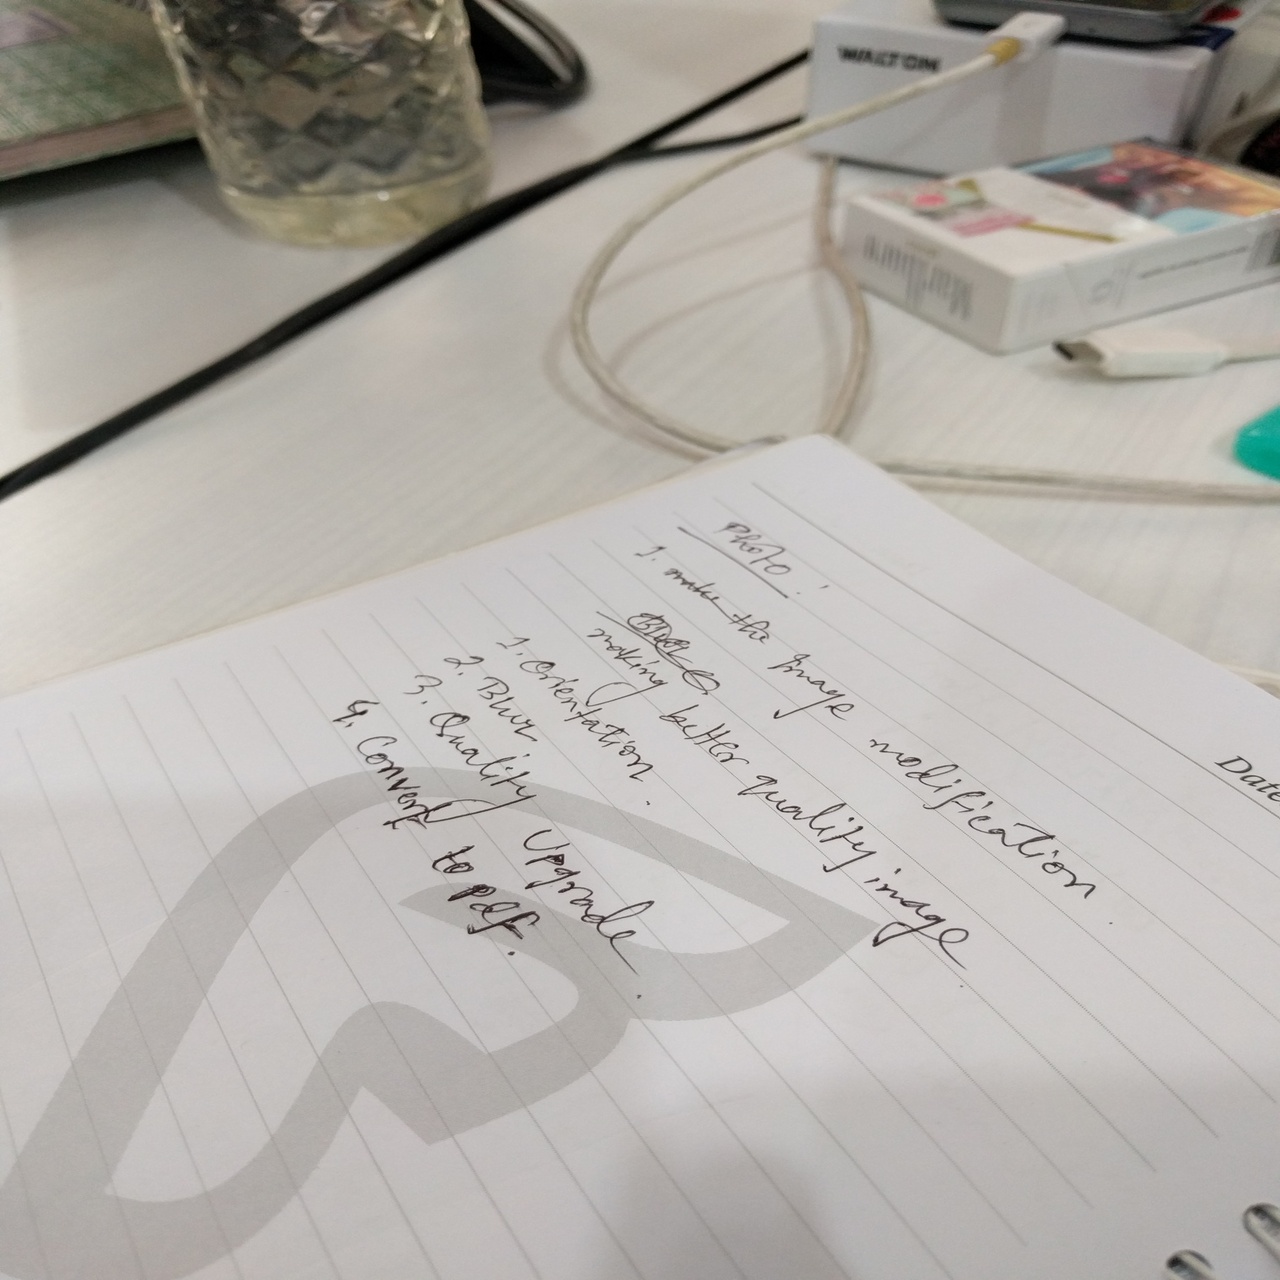 WALTON
Marlboro
Date
Photo :
1. make the Image modification.
making better quality image
1. Orientation.
2. Blur
3. Quality Upgrade.
4. Convert to pdf.